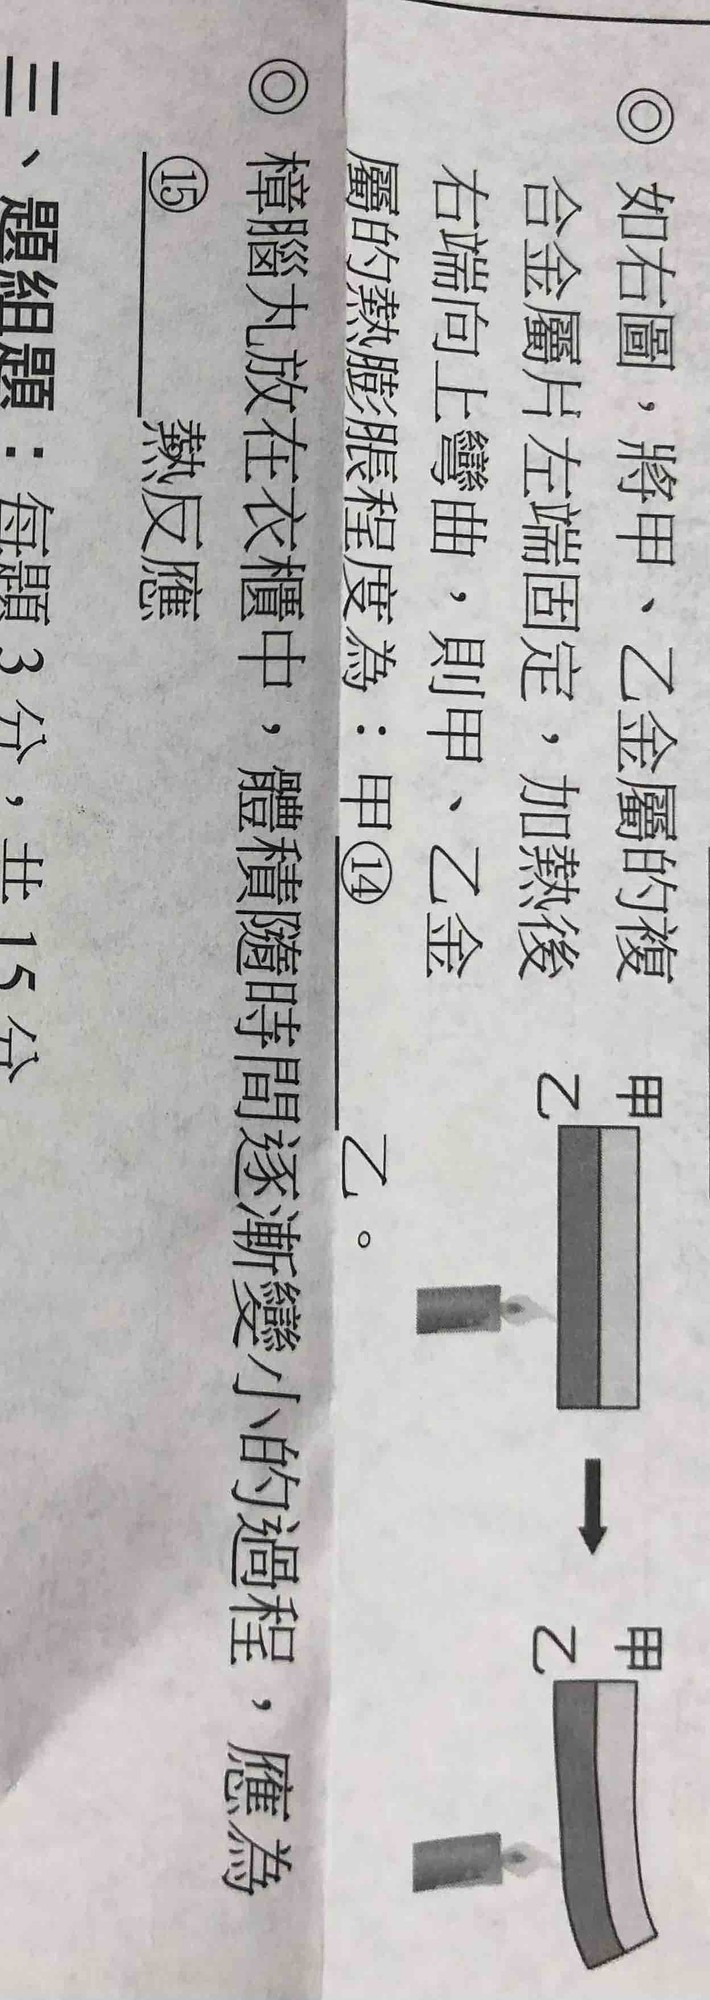 ◎ 如右圖，將甲、乙金屬的複
合金屬片左端固定，加熱後
右端向上彎曲，則甲、乙金
屬的熱膨脹程度為：甲⑭＿＿＿＿乙。
甲
乙
甲
乙
◎ 樟腦丸放在衣櫃中，體積隨時間逐漸變小的過程，應為
⑮＿＿＿＿熱反應
三、題組題：每題3分，共15分